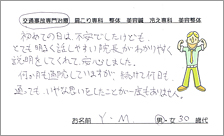 交通事故専門治療 肩こり専科 整体 美容鍼 冷え専科 美容整体
初めての日は、不安でしたけども、
とても明るく話しやすい院長がわかりやすく
説明をしてくれて、安心しました。
何ヶ月も通院していますが、続けて何ヶ月も
通っても、いやな思いをしたことが一度もありません。
お名前 Y.M. 男・女 30 歳代